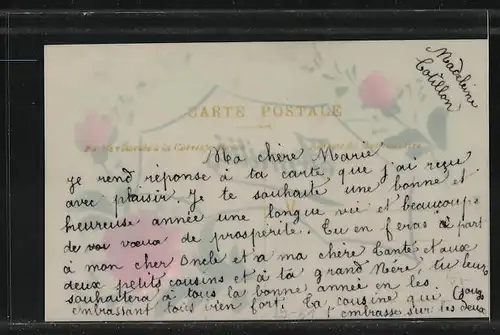 Madeleine
Cotillon
CARTE POSTALE
Ma chère Marie
je rend réponse à ta carte que j'ai reçu
avec plaisir. Je te souhaite une bonne et
heureuse année une longue vie et beaucoups
de voi vœux de prospérité. Tu en feras à part
à mon cher Oncle et a ma chère Tante et aux
deux petits cousins et à ta grand Mère, tu leurs
souhaitera à tous la bonne année en les
embrassant tous bien fort. Ta cousine qui
t'embrasses sur les deux
joues